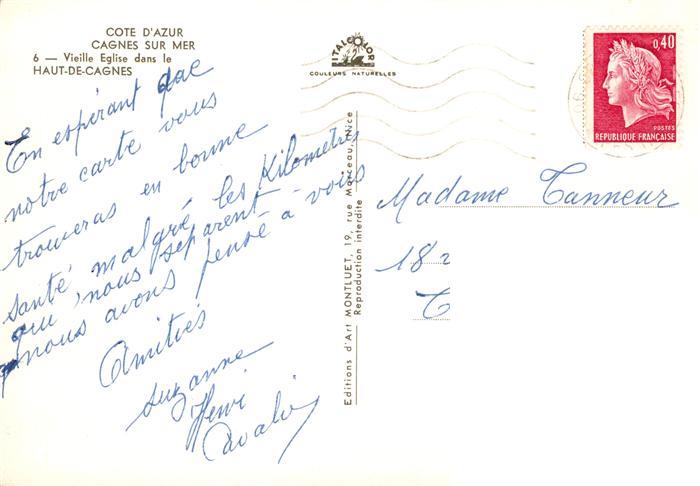 COTE D'AZUR
CAGNES SUR MER
6 — Vieille Eglise dans le
HAUT-DE-CAGNES
En espérant que
notre carte vous
trouveras en bonne
santé malgré les Kilomètres
qui nous séparent
nous avons pensé à vois
Amitiés
Suzanne
Henri
ITALCOLOR
COULEURS NATURELLES
Editions d'Art MONTLUET, 19, rue Marceau, Nice
Reproduction interdite
0,40
POSTES
REPUBLIQUE FRANÇAISE
Madame Tanneur
182